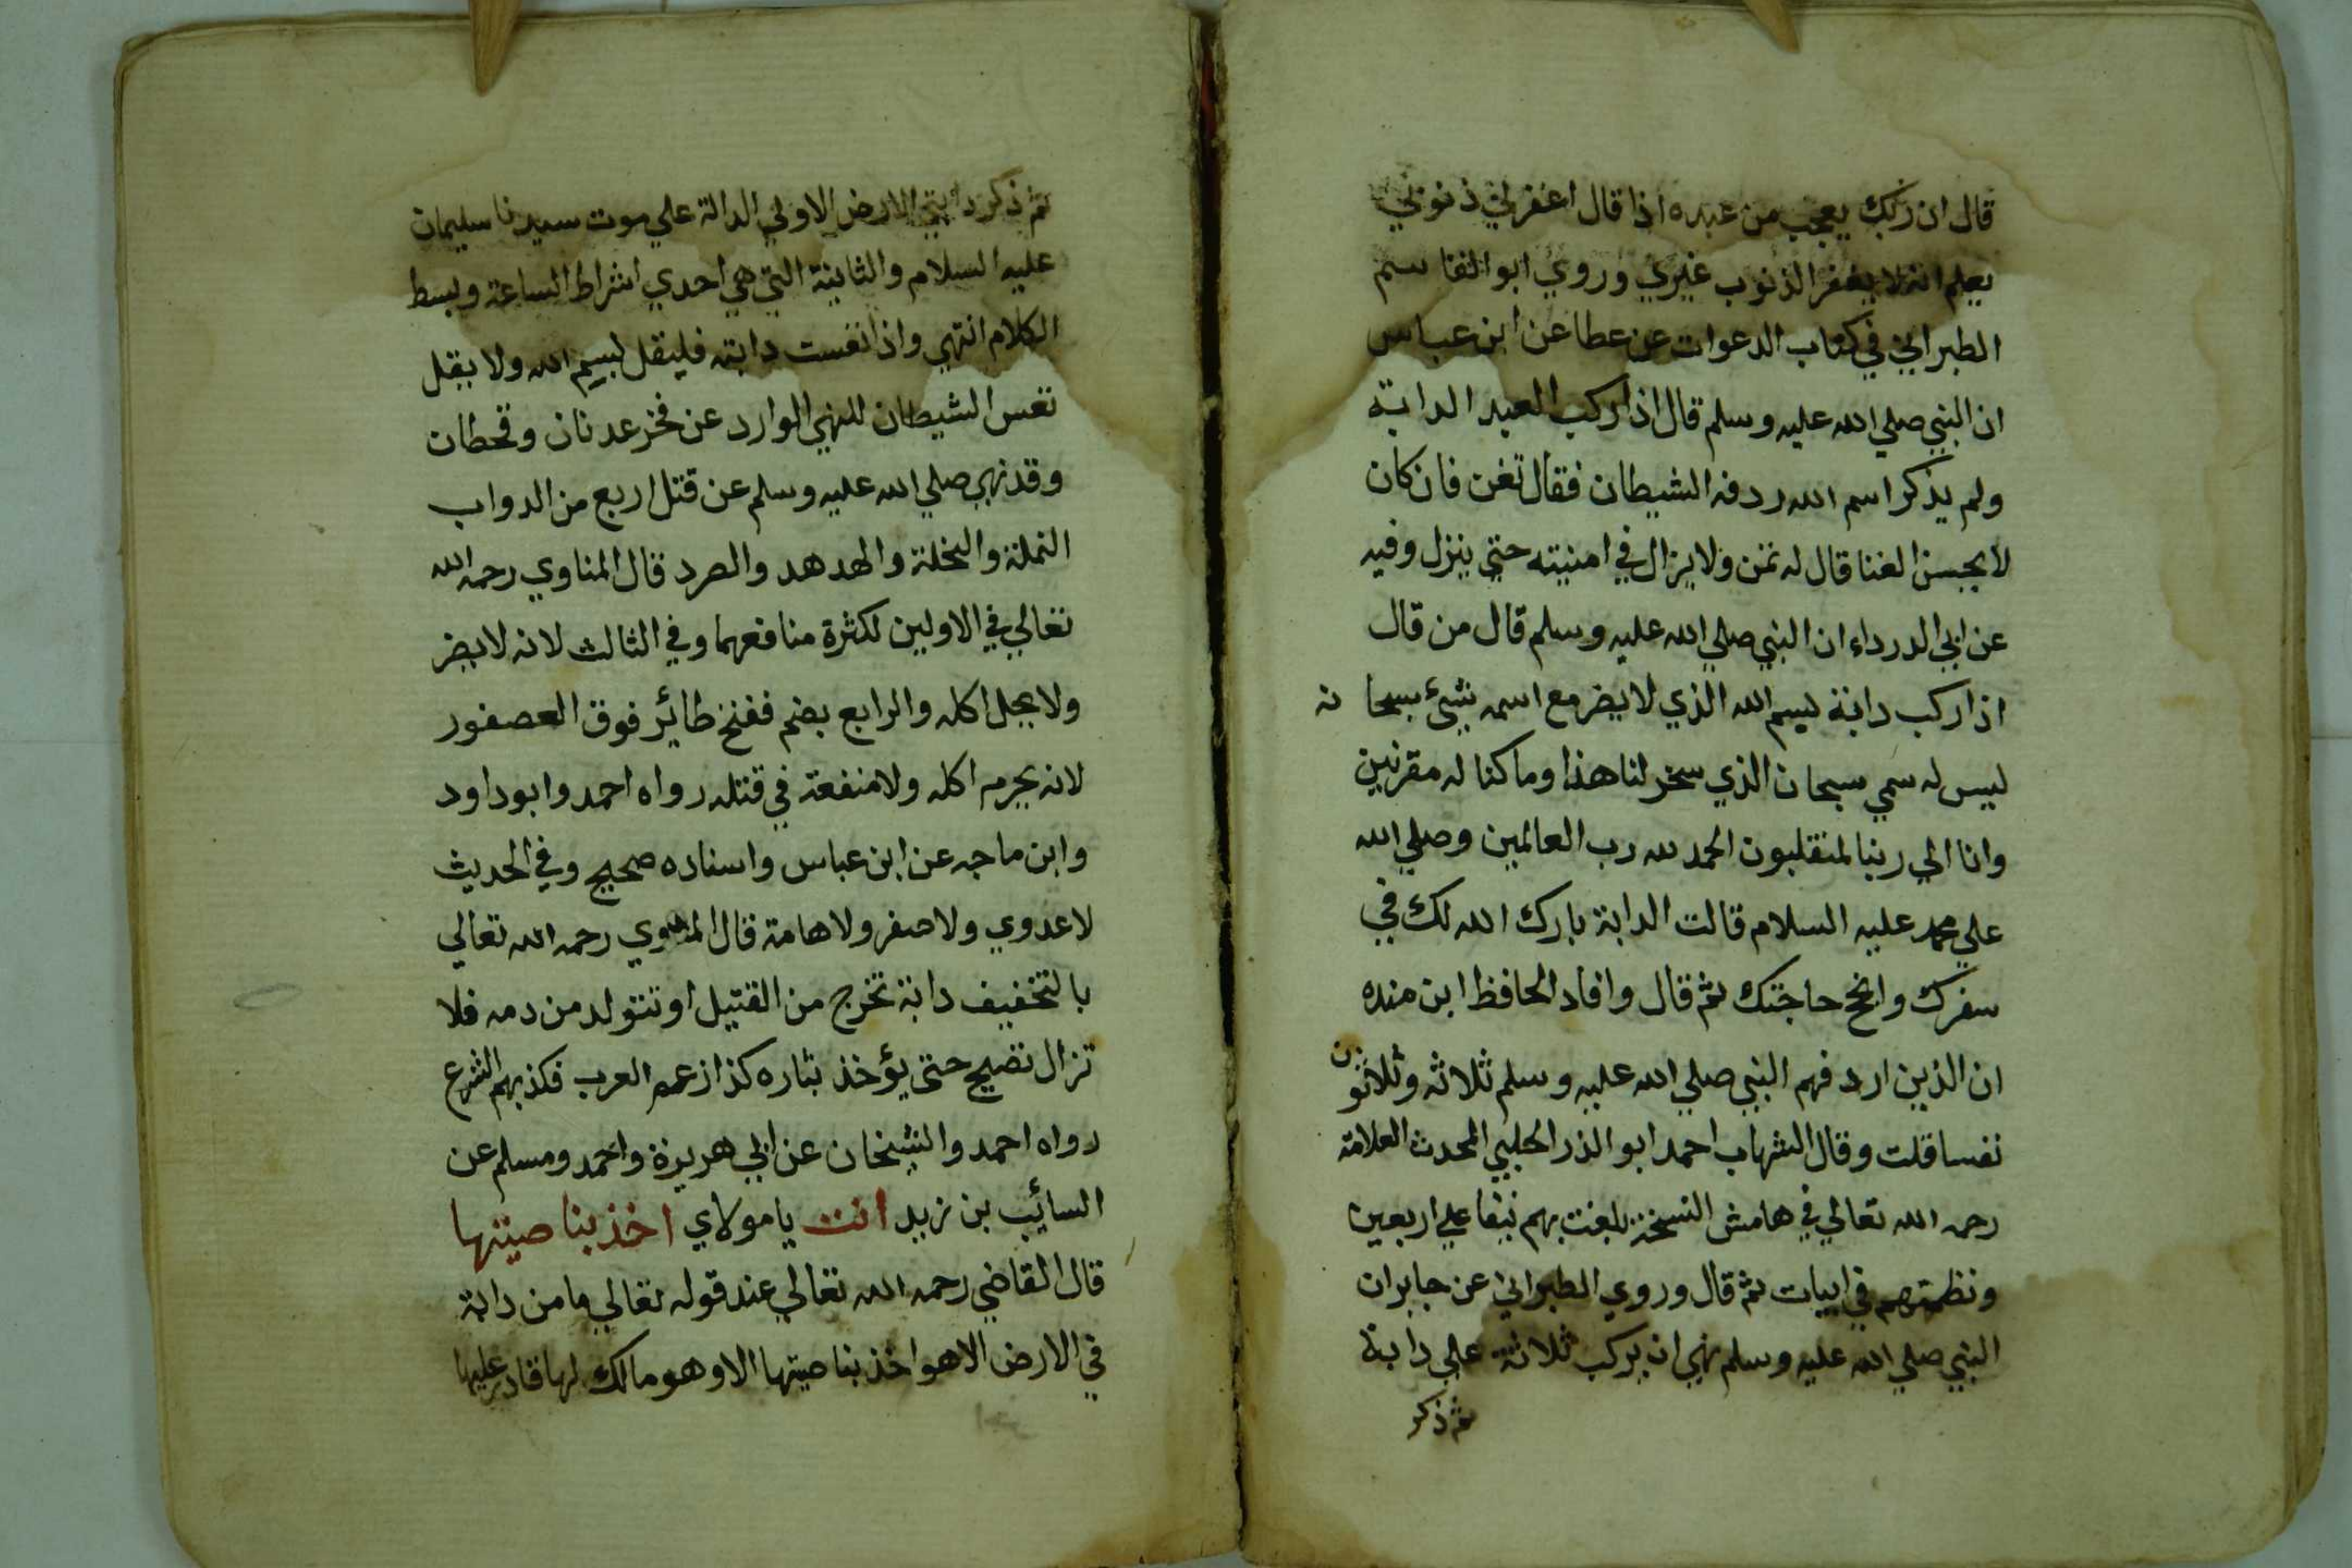 قال ان ربك يعجب من عبده اذا قال اغفر لي ذنوبي
يعلم انه لا يغفر الذنوب غيري وروي ابو القاسم
الطبراني في كتاب الدعوات عن عطا عن ابن عباس
ان النبي صلي الله عليه وسلم قال اذا ركب العبد الدابة
ولم يذكر اسم الله ردفه الشيطان فقال تغن فان كان
لا يحسن الغنا قال له تمن ولا يزال في امنيته حتي ينزل وفيه
عن ابي الدرداء ان النبي صلي الله عليه وسلم قال من قال
اذا ركب دابة بسم الله الذي لا يضر مع اسمه شيء سبحانه
ليس له سمي سبحان الذي سخر لنا هذا وما كنا له مقرنين
وانا الي ربنا لمنقلبون الحمد لله رب العالمين وصلي الله
علي محمد عليه السلام قالت الدابة بارك الله لك في
سفرك وانجح حاجتك ثم قال وافاد الحافظ ابن منده
ان الذين اردفهم النبي صلي الله عليه وسلم ثلاثه وثلاثون
نفسا قلت وقال الشهاب احمد ابو الذر الحلبي المحدث العلامة
رحمه الله تعالي في هامش النسخة بلغت بهم نيفا علي اربعين
ونظمتهم في ابيات ثم قال وروي الطبراني عن جابر ان
النبي صلي الله عليه وسلم نهي ان يركب ثلاثة علي دابة
ثم ذكر
ثم ذكر دابتي الارض الاولي الدالة علي موت سيدنا سليمان
عليه السلام والثانية التي هي احدي اشراط الساعة وبسط
الكلام انتهي واذا تعست دابته فليقل بسم الله ولا يقل
تعس الشيطان للنهي الوارد عن فخر عدنان وقحطان
وقد نهي صلي الله عليه وسلم عن قتل اربع من الدواب
النملة والنحلة والهدهد والصرد قال المناوي رحمه الله
تعالي في الاولين لكثرة منافعهما وفي الثالث لانه لا يضر
ولا يحل اكله والرابع بضم ففتح طائر فوق العصفور
لانه يحرم اكله ولا منفعة في قتله رواه احمد وابو داود
وابن ماجه عن ابن عباس واسناده صحيح وفي الحديث
لا عدوي ولا صفر ولا هامة قال المناوي رحمه الله تعالي
بالتخفيف دابة تخرج من القتيل او تتولد من دمه فلا
تزال تصيح حتي يؤخذ بثاره كذا زعم العرب فكذبهم الشرع
رواه احمد والشيخان عن ابي هريرة واحمد ومسلم عن
السائب بن يزيد انت يا مولاي اخذ بناصيتها
قال القاضي رحمه الله تعالي عند قوله تعالي ما من دابة
في الارض الا هو اخذ بناصيتها الا وهو مالك لها قادر عليها